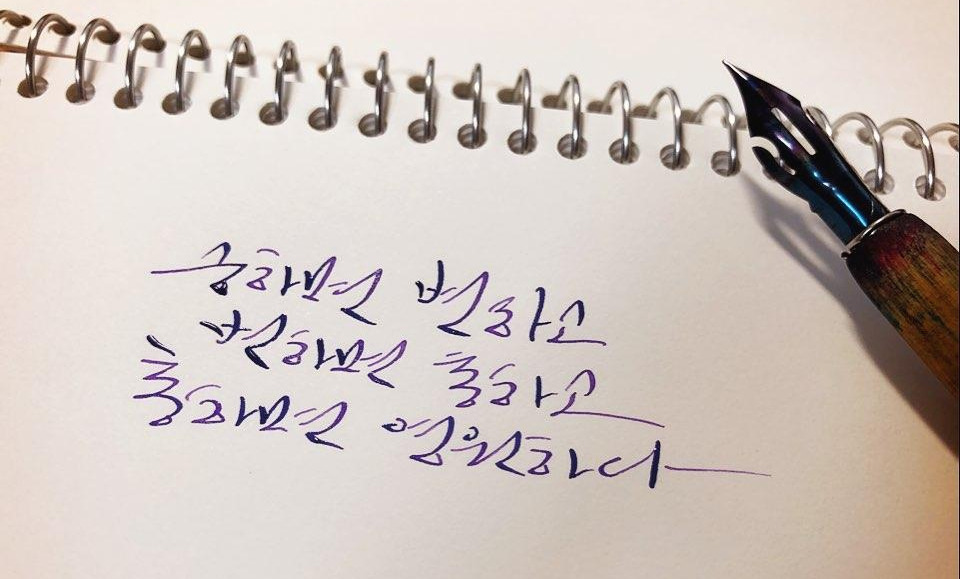 궁하면 변하고
변하면 통하고
통하면 영원하다